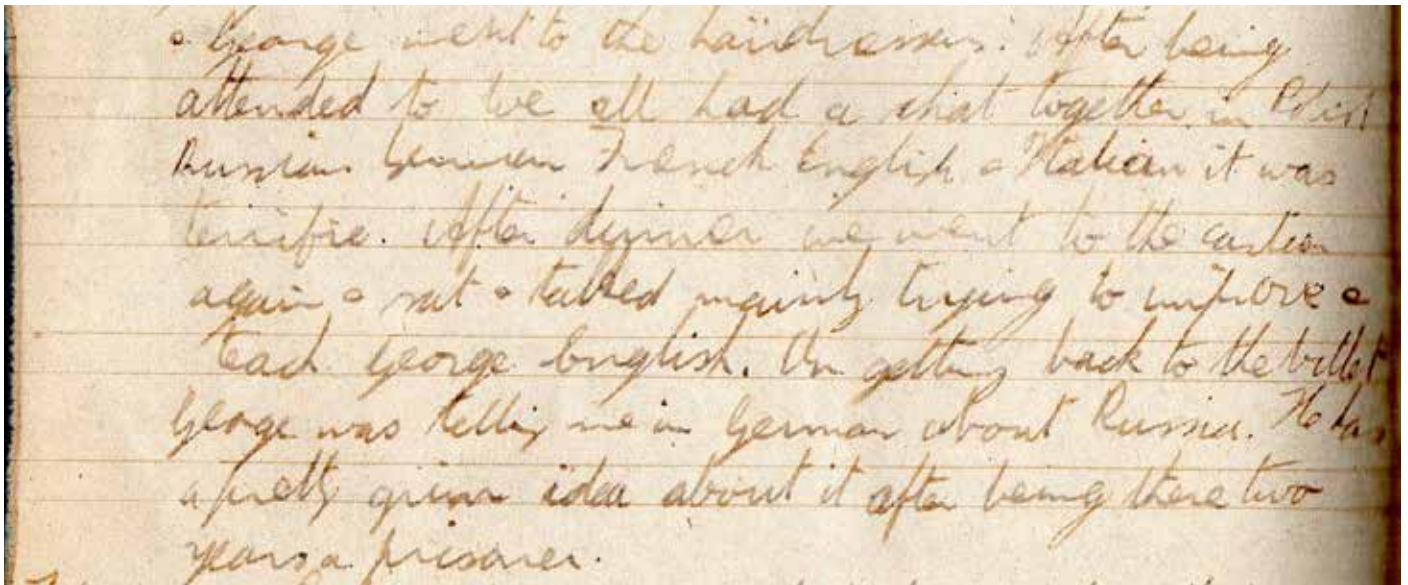 & George went to the hairdressers. After being
attended to we all had a chat together in Polish
Russian German French English & Italian it was
terrific. After dinner we went to the
again & sat & talked mainly trying to improve &
teach George English. On getting back to the billet
George was telling me in German about Russia. He has
a pretty grim idea about it after being there two
years a prisoner.